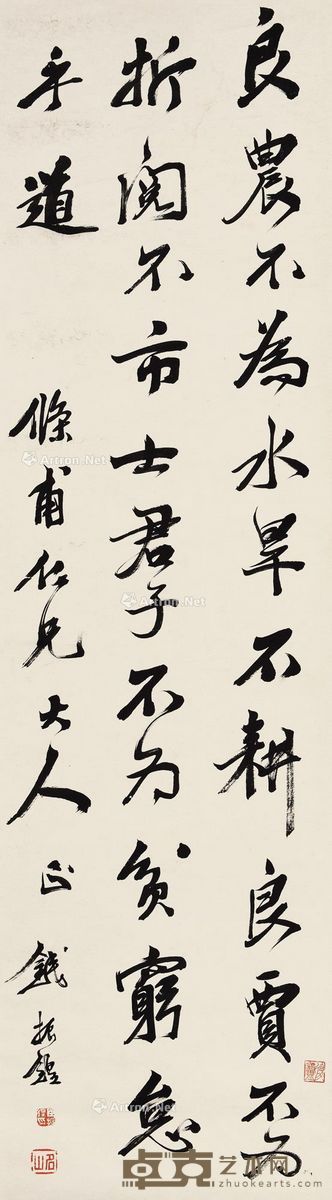 良農不為水旱不耕良賈不為
折閱不市士君子不為貧窮怠
乎道
條甫仁兄大人正錢振鍠
名山
Artron.Net
卓克艺术网
zhuokearts.com